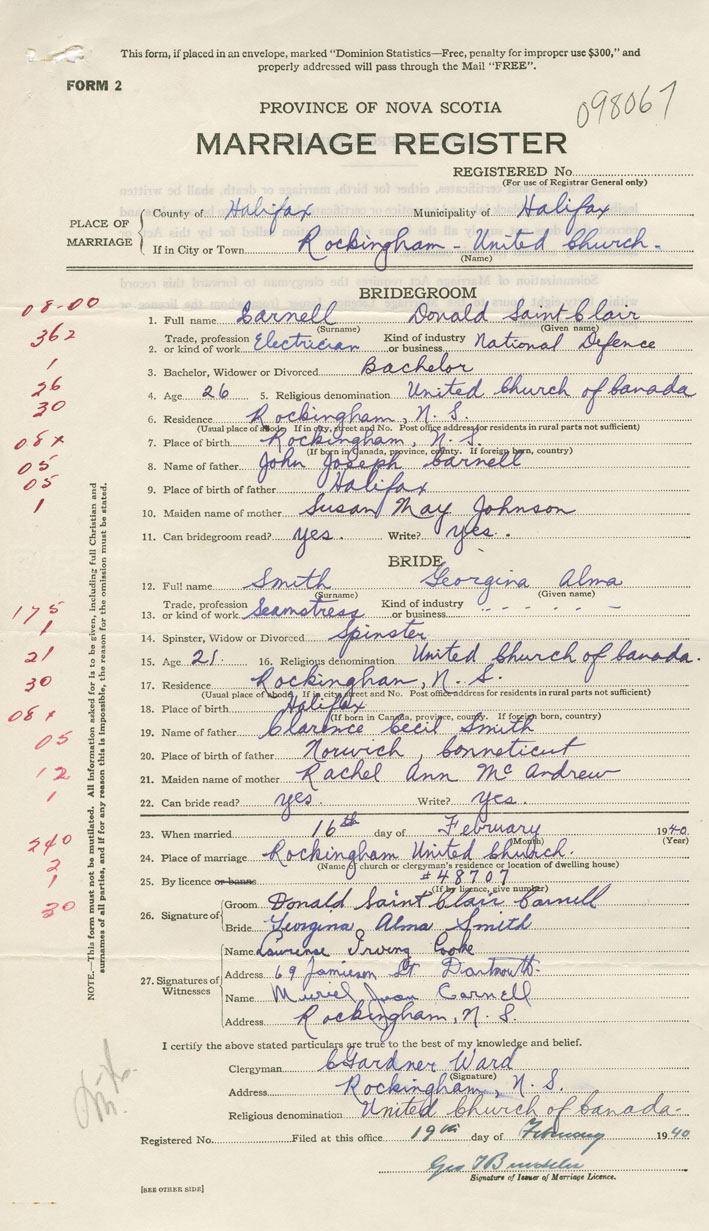 This form, if placed in an envelope, marked "Dominion Statistics—Free, penalty for improper use $300," and
properly addressed will pass through the Mail "FREE".
FORM 2
098067
PROVINCE OF NOVA SCOTIA
MARRIAGE REGISTER
REGISTERED No.
(For use of Registrar General only)
PLACE OF MARRIAGE
County of Halifax Municipality of Halifax
If in City or Town Rockingham - United Church.
(Name)
BRIDEGROOM
08-00
1. Full name Carnell Donald Saint Clair
(Surname) (Given name)
362
2. Trade, profession or kind of work Electrician Kind of industry or business National Defence
1
3. Bachelor, Widower or Divorced Bachelor
26
4. Age 26 5. Religious denomination United Church of Canada
30
6. Residence Rockingham, N. S.
(Usual place of abode. If in city, street and No. Post office address for residents in rural parts not sufficient)
08x
7. Place of birth Rockingham, N. S.
(If born in Canada, province, county. If foreign born, country)
05
8. Name of father John Joseph Carnell
05
9. Place of birth of father Halifax
1
10. Maiden name of mother Susan May Johnson
11. Can bridegroom read? yes. Write? yes.
BRIDE
12. Full name Smith Georgina Alma
(Surname) (Given name)
175
13. Trade, profession or kind of work Seamstress Kind of industry or business - - - - -
1
14. Spinster, Widow or Divorced Spinster
21
15. Age 21. 16. Religious denomination United Church of Canada.
30
17. Residence Rockingham, N. S.
(Usual place of abode. If in city, street and No. Post office address for residents in rural parts not sufficient)
08x
18. Place of birth Halifax
(If born in Canada, province, county. If foreign born, country)
05
19. Name of father Clarence Cecil Smith
20. Place of birth of father Norwich, Conneticut
12
21. Maiden name of mother Rachel Ann McAndrew
1
22. Can bride read? yes. Write? yes.
23. When married 16th day of February 1940
(Month) (Year)
240
24. Place of marriage Rockingham United Church.
(Name of church or clergyman's residence or location of dwelling house)
2
1
25. By licence or banns #48707
(If by licence, give number)
30
26. Signature of
Groom Donald Saint Clair Carnell
Bride Georgina Alma Smith
27. Signatures of Witnesses
Name Lawrence Irving Cooke
Address 69 Jamieson St Dartmouth.
Name Muriel Joan Carnell
Address Rockingham, N. S.
I certify the above stated particulars are true to the best of my knowledge and belief.
Clergyman C Gardner Ward
(Signature)
Address Rockingham, N. S.
Religious denomination United Church of Canada.
Registered No. Filed at this office 19th day of February 1940
Geo
Signature of Issuer of Marriage Licence.
[SEE OTHER SIDE]
NOTE.—This form must not be mutilated. All information asked for is to be given, including full Christian and
surnames of all parties, and if for any reason this is impossible, the reason for the omission must be stated.